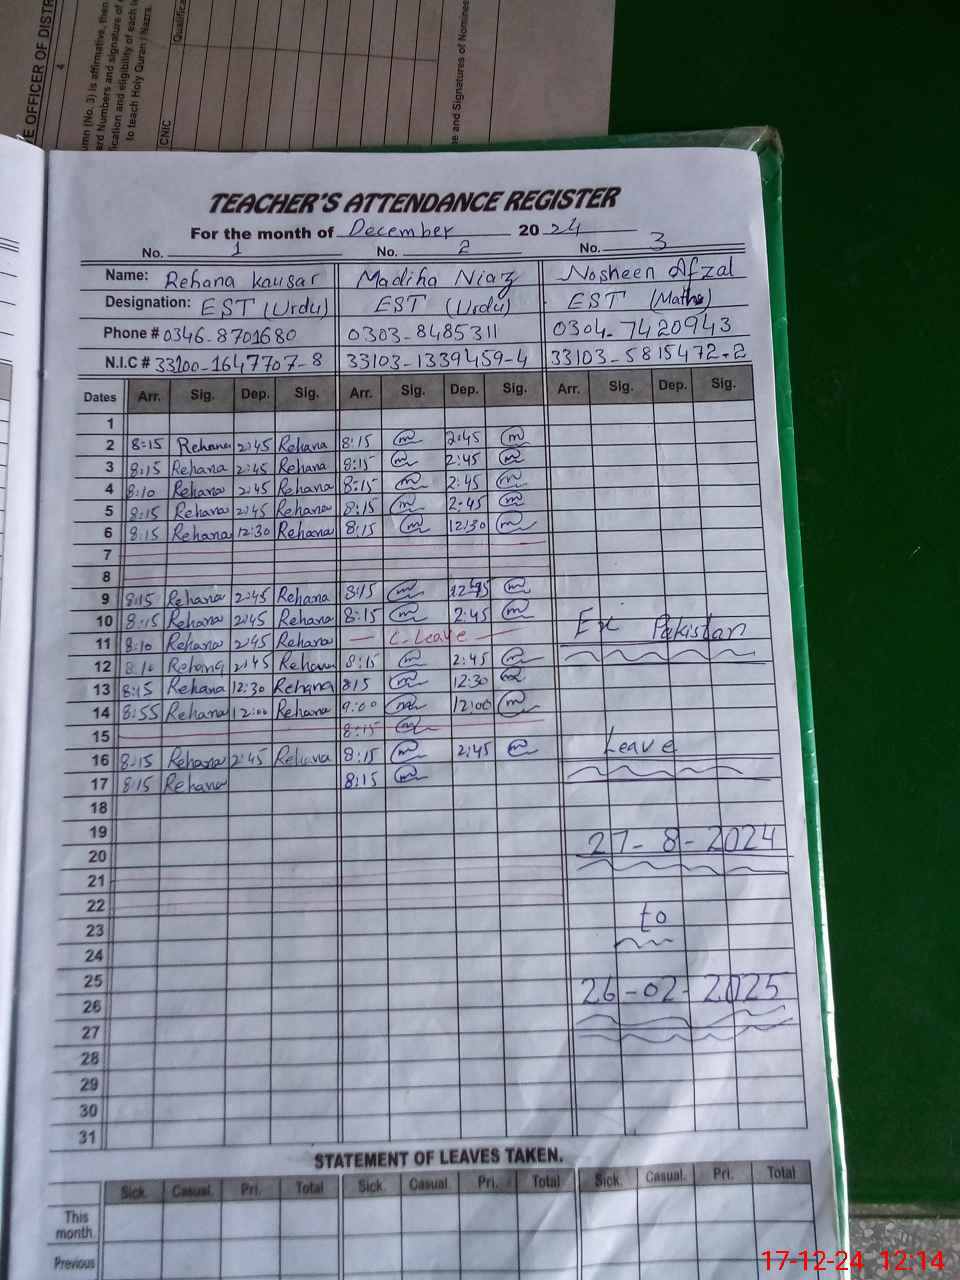 E OFFICER OF DISTR
4
umn (No. 3) is affirmative, then
ard Numbers and signature of
fication and eligibility of each
to teach Holy Quran / Nazra.
CNIC
Qualifica
e and Signatures of Nominee
TEACHER'S ATTENDANCE REGISTER
For the month of December 2024
No. 1 No. 2 No. 3
Name: Rehana Kausar Madiha Niaz Nosheen Afzal
Designation: EST (Urdu) EST (Urdu) EST (Maths)
Phone # 0346-8701680 0303-8485311 0304-7420943
N.I.C # 33100-1647707-8 33103-1339459-4 33103-5815472-2
Dates Arr. Sig. Dep. Sig. Arr. Sig. Dep. Sig. Arr. Sig. Dep. Sig.
1
2 8:15 Rehana 2:45 Rehana 8:15 m 2:45 m
3 8:15 Rehana 2:45 Rehana 8:15 m 2:45 m
4 8:10 Rehana 2:45 Rehana 8:15 m 2:45 m
5 8:15 Rehana 2:45 Rehana 8:15 m 2:45 m
6 8:15 Rehana 12:30 Rehana 8:15 m 12:30 m
7
8
9 8:15 Rehana 2:45 Rehana 8:15 m m
10 8:15 Rehana 2:45 Rehana 8:15 m 2:45 m Ex Pakistan
11 8:10 Rehana 2:45 Rehana - C-Leave -
12 8:10 Rehana 2:45 Rehana 8:15 m 2:45 m
13 8:15 Rehana 12:30 Rehana 8:15 m 12:30 m
14 8:55 Rehana 12:00 Rehana 9:00 m 12:00 m
15 8:15 m
16 8:15 Rehana 2:45 Rehana 8:15 m 2:45 m Leave
17 8:15 Rehana 8:15 m
18
19
20 27-8-2024
21
22
23 to
24
25
26 26-02-2025
27
28
29
30
31
STATEMENT OF LEAVES TAKEN.
Sick. Casual. Pri. Total Sick. Casual Pri. Total Sick. Casual. Pri. Total
This
month.
Previous
17-12-24 12:14